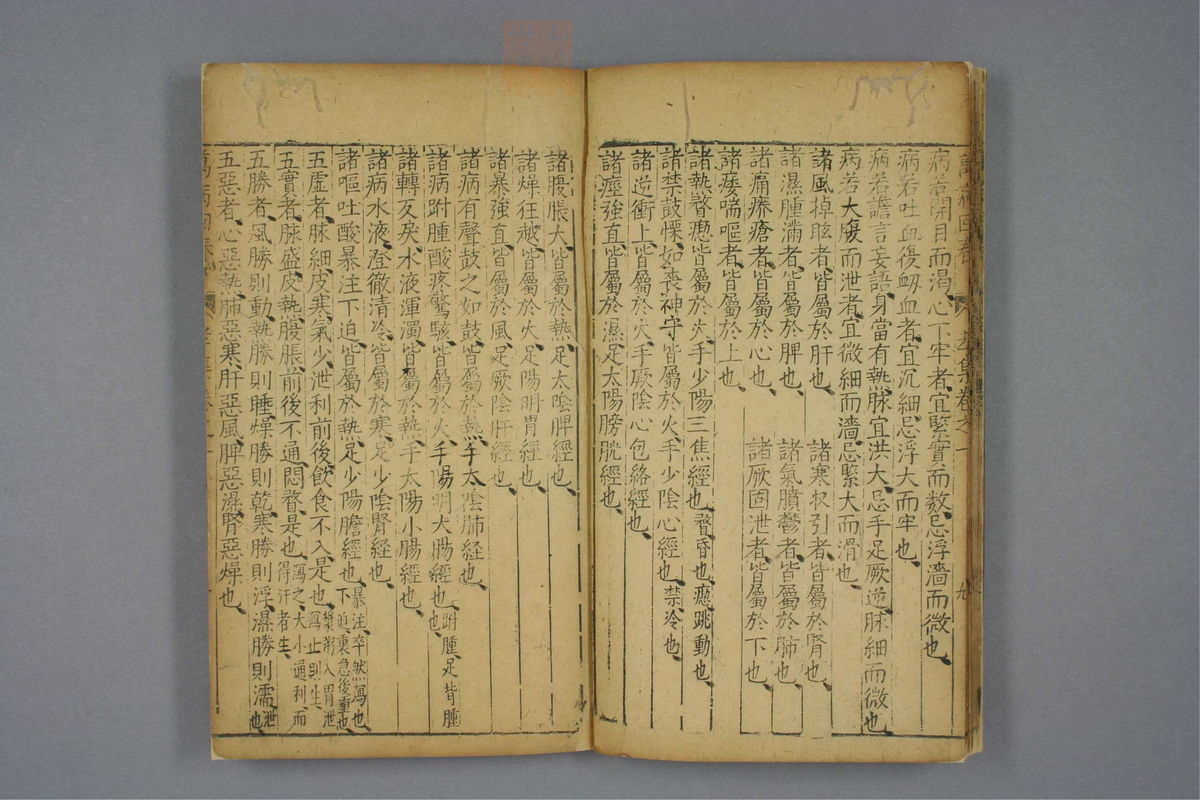 病若開目而渴心下牢者宜緊實而数忌浮濇而微也
病若吐血復衂血者宜沉細忌浮大而牢也
病若譫言妄語身當有熱脉宜洪大忌手足厥逆脉細而微也
病若大腹而泄者宜微細而濇忌緊大而滑也
諸風掉眩者皆屬於肝也 諸寒収引者皆屬於腎也
諸濕腫滿者皆屬於脾也 諸氣膹鬱者皆屬於肺也
諸痛痒瘡者皆屬於心也 諸厥固泄者皆屬於下也
諸痿喘嘔者皆屬於上也
諸熱瞀瘛皆屬於火手少陽三焦經也瞀昏也瘛跳動也
諸禁鼓慄如喪神守皆屬於火手少陰心經也禁冷也
諸逆衝上皆屬於火手厥陰心包絡經也
諸痙強直皆屬於濕足太陽膀胱經也
諸腹脹大皆屬於熱足太陰脾經也
諸燥狂越皆屬於火足陽明胃經也
諸暴強直皆屬於風足厥陰肝經也
諸病有聲鼓之如鼓皆屬於熱手太陰肺経也
諸病胕腫酸疼驚駭皆屬於火手陽明大腸經也胕腫足背腫也
諸轉反戾水液渾濁皆屬於熱手太陽小腸經也
諸病水液澄徹清冷皆屬於寒足少陰腎経也
諸嘔吐酸暴注下迫皆屬於熱足少陽膽經也暴注卒然瀉也下迫裏急後重也
五虛者脉細皮寒氣少泄利前後飲食不入是也漿粥入胃泄瀉止則生
五實者脉盛皮熱腹脹前後不通悶瞀是也瀉之大小通利而得汗者生
五勝者風勝則動熱勝則腫燥勝則乾寒勝則浮濕勝則濡泄也
五惡者心惡熱肺惡寒肝惡風脾惡濕腎惡燥也